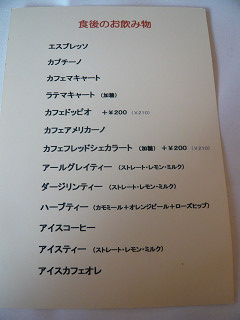 食後のお飲み物
エスプレッソ
カプチーノ
カフェマキャート
ラテマキャート (加糖)
カフェドッピオ +¥200 (¥210)
カフェアメリカーノ
カフェフレッドシェカラート (加糖) +¥200 (¥210)
アールグレイティー (ストレート・レモン・ミルク)
ダージリンティー (ストレート・レモン・ミルク)
ハーブティー (カモミール+オレンジピール+ローズヒップ)
アイスコーヒー
アイスティー (ストレート・レモン・ミルク)
アイスカフェオレ